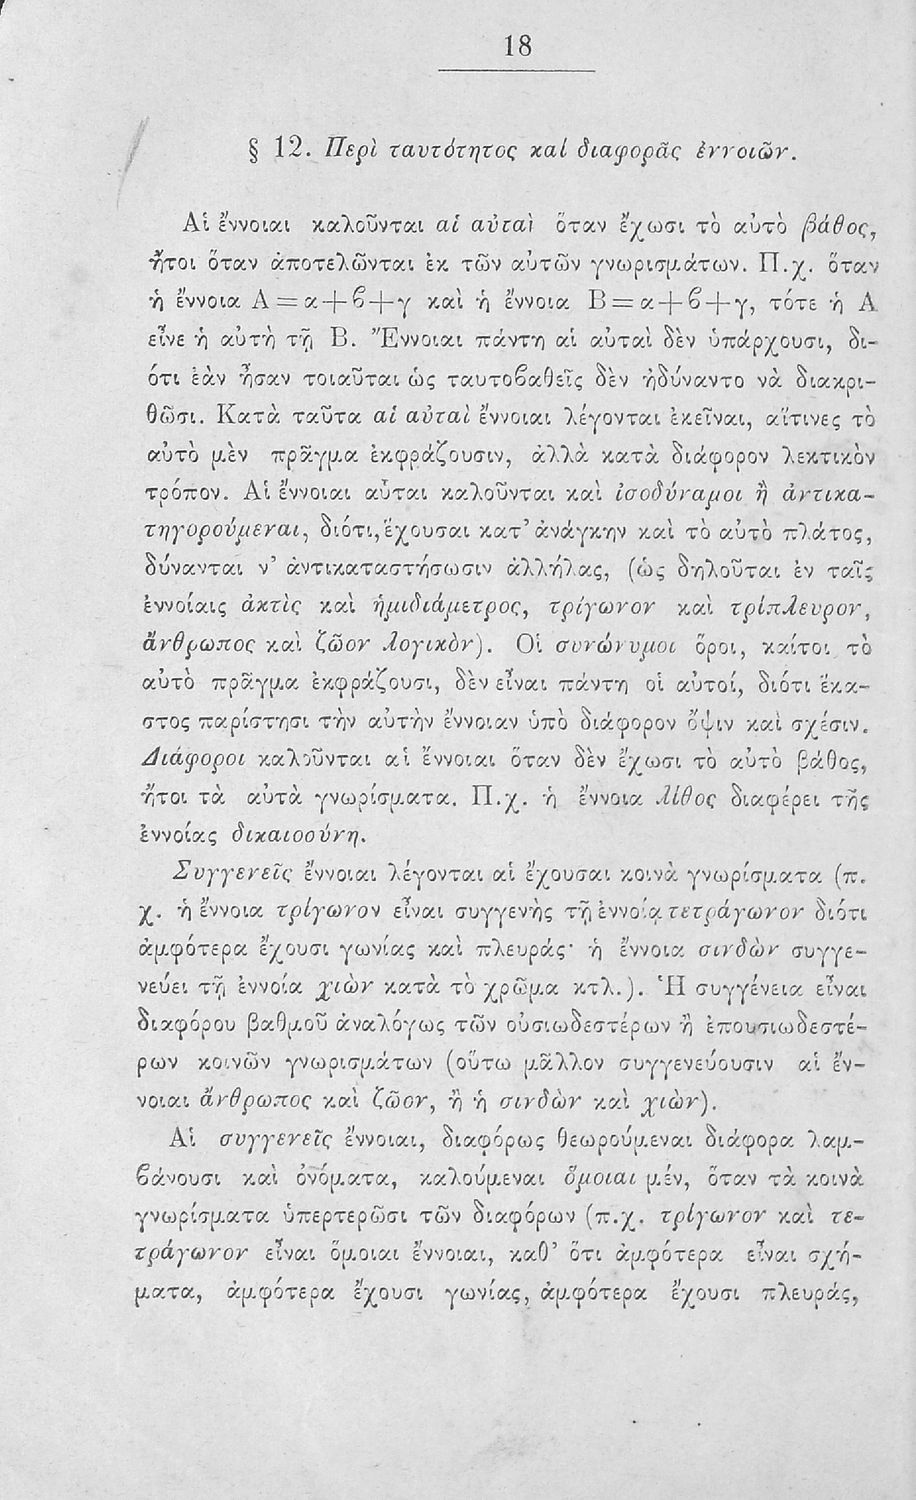 18
§ 12. Περὶ ταυτότητος καί διαφορᾶς ἐννοιῶν.
Αἱ ἔννοιαι καλοῦνται αἱ αὐταὶ ὅταν ἔχωσι τὸ αὐτὸ βάθος,
ἤτοι ὅταν ἀποτελῶνται ἐκ τῶν αὐτῶν γνωρισμάτων. Π.χ. ὅταν
ἡ ἔννοια Α = α + ϐ + γ καὶ ἡ ἔννοια Β = α + ϐ + γ, τότε ἡ Α
εἶνε ἡ αὐτὴ τῇ Β. Ἔννοιαι πάντῃ αἱ αὐταὶ δὲν ὑπάρχουσι, δι-
ότι ἐὰν ἦσαν τοιαῦται ὡς ταυτοϐαθεῖς δὲν ἠδύναντο νὰ διακρι-
θῶσι. Κατὰ ταῦτα αἱ αὐταὶ ἔννοιαι λέγονται ἐκεῖναι, αἵτινες τὸ
αὐτὸ μὲν πρᾶγμα ἐκφράζουσιν, ἀλλὰ κατὰ διάφορον λεκτικὸν
τρόπον. Αἱ ἔννοιαι αὗται καλοῦνται καὶ ἰσοδύναμοι ἢ ἀντικα-
τηγορούμεναι, διότι, ἔχουσαι κατ’ ἀνάγκην καὶ τὸ αὐτὸ πλάτος,
δύνανται ν’ ἀντικαταστήσωσιν ἀλλήλας, (ὡς δηλοῦται ἐν ταῖς
ἐννοίαις ἀκτὶς καὶ ἡμιδιάμετρος, τρίγωνον καὶ τρίπλευρον,
ἄνθρωπος καὶ ζῶον λογικὸν). Οἱ συνώνυμοι ὅροι, καίτοι τὸ
αὐτὸ πρᾶγμα ἐκφράζουσι, δὲν εἶναι πάντῃ οἱ αὐτοί, διότι ἕκα-
στος παρίστησι τὴν αὐτὴν ἔννοιαν ὑπὸ διάφορον ὄψιν καὶ σχέσιν.
Διάφοροι καλοῦνται αἱ ἔννοιαι ὅταν δὲν ἔχωσι τὸ αὐτὸ βάθος,
ἤτοι τὰ αὐτὰ γνωρίσματα. Π.χ. ἡ ἔννοια λίθος διαφέρει τῆς
ἐννοίας δικαιοσύνη.
Συγγενεῖς ἔννοιαι λέγονται αἱ ἔχουσαι κοινὰ γνωρίσματα (π.
χ. ἡ ἔννοια τρίγωνον εἶναι συγγενὴς τῇ ἐννοίᾳ τετράγωνον διότι
ἀμφότερα ἔχουσι γωνίας καὶ πλευράς· ἡ ἔννοια σινδὼν συγγε-
νεύει τῇ ἐννοίᾳ χιὼν κατὰ τὸ χρῶμα κτλ.). Ἡ συγγένεια εἶναι
διαφόρου βαθμοῦ ἀναλόγως τῶν οὐσιωδεστέρων ἢ ἐπουσιωδεστέ-
ρων κοινῶν γνωρισμάτων (οὕτω μᾶλλον συγγενεύουσιν αἱ ἔν-
νοιαι ἄνθρωπος καὶ ζῶον, ἢ ἡ σινδὼν καὶ χιὼν).
Αἱ συγγενεῖς ἔννοιαι, διαφόρως θεωρούμεναι διάφορα λαμ-
ϐάνουσι καὶ ὀνόματα, καλούμεναι ὅμοιαι μέν, ὅταν τὰ κοινὰ
γνωρίσματα ὑπερτερῶσι τῶν διαφόρων (π.χ. τρίγωνον καὶ τε-
τράγωνον εἶναι ὅμοιαι ἔννοιαι, καθ’ ὅτι ἀμφότερα εἶναι σχή-
ματα, ἀμφότερα ἔχουσι γωνίας, ἀμφότερα ἔχουσι πλευράς,